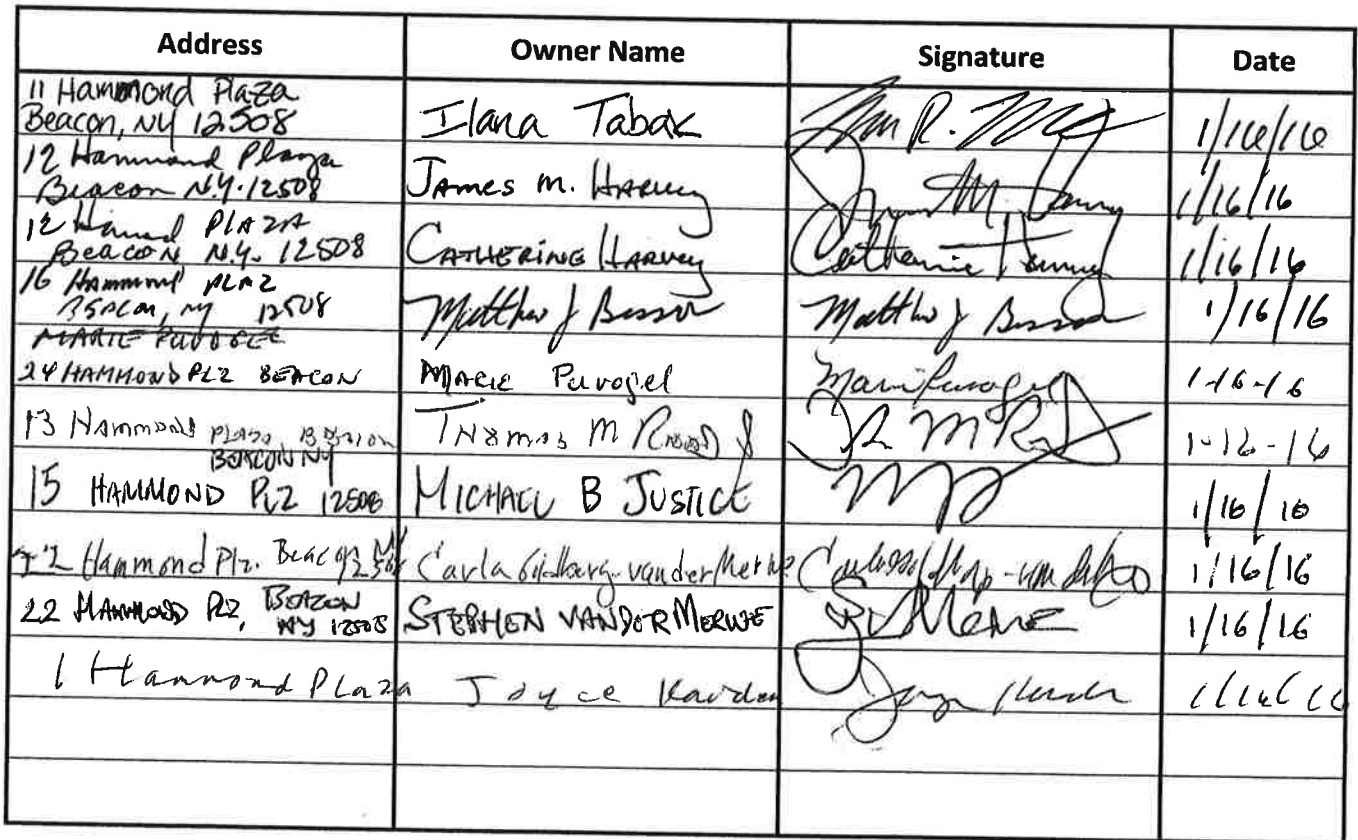 Address Owner Name Signature Date
11 Hammond Plaza
Beacon, NY 12508 Ilana Tabak 1/16/16
12 Hammond Plaza
Beacon N.Y. 12508 James M. Harvey 1/16/16
12 PLAZA
Beacon N.Y. 12508 Catherine Harvey Catherine Harvey 1/16/16
16 Hammond PLAZ
Beacon, NY 12508 Matthew J 1/16/16
MARIE PUVOGEL
24 HAMMOND PLZ BEACON Marie Puvogel Marie Puvogel 1-16-16
13 Hammond Plaza, Beacon Thomas M 1-16-16
BEACON NY
15 HAMMOND PLZ 12508 MICHAEL B JUSTICE 1/16/16
22 Hammond Plz. Beacon, NY 12508 Carla van der Merwe 1/16/16
22 HAMMOND PLZ, BEACON
NY 12508 STEPHEN VANDERMERWE 1/16/16
1 Hammond Plaza Joyce 1/16/16